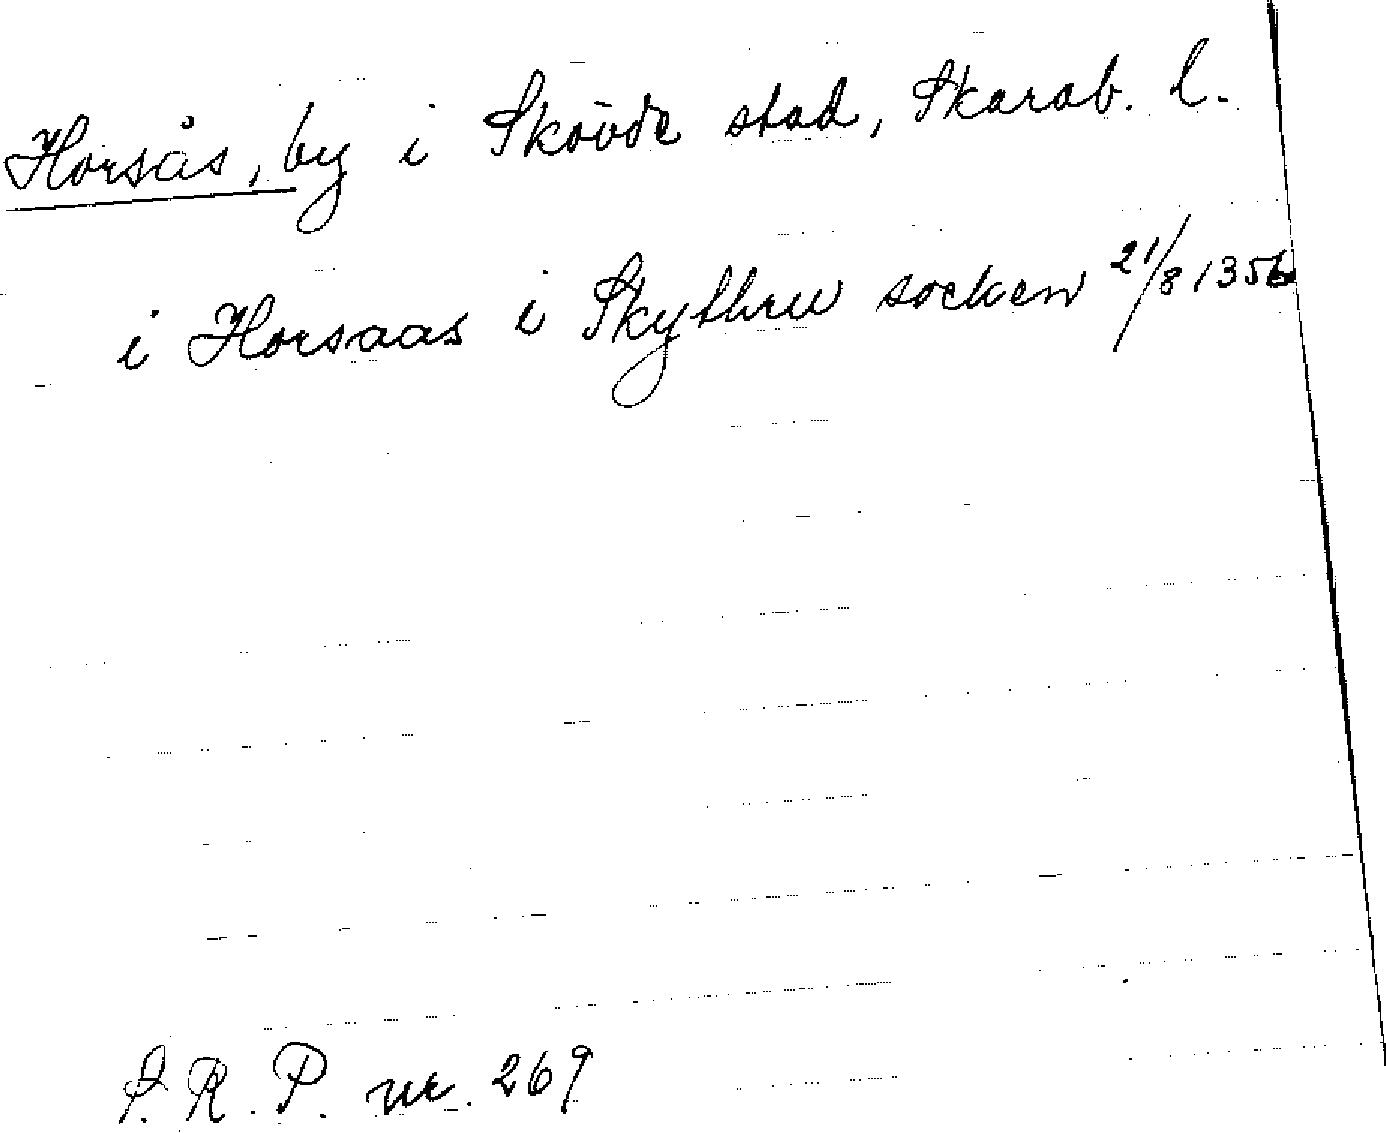 Horsås, by i Skövde stad, Skarab. l.
i Horsaas i Skythrw socken 21/8 1356
S. R. P. nr. 269